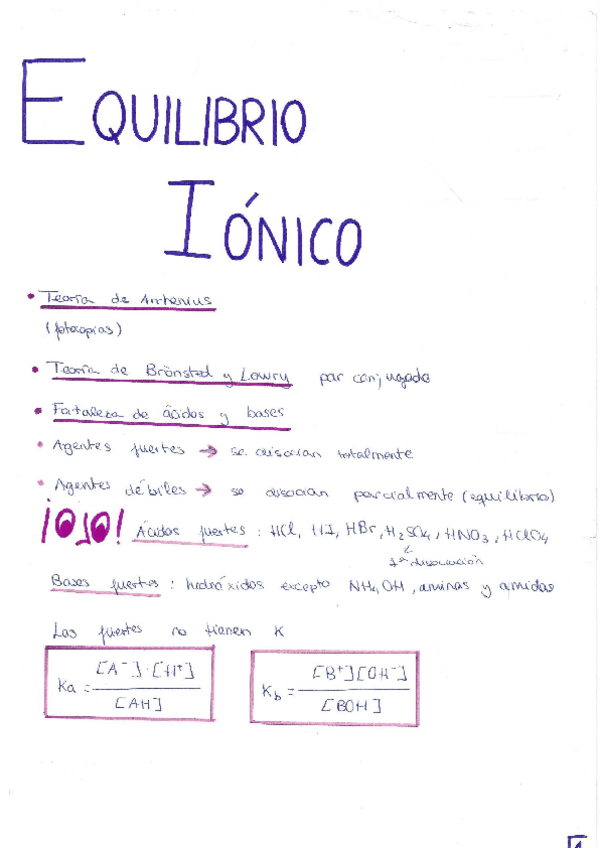 EQUILIBRIO
IÓNICO
• Teoría de Arrhenius
(fotocopias)
• Teoría de Brönsted y Lowry par conjugado
• Fortaleza de ácidos y bases
• Agentes fuertes → se disocian totalmente
• Agentes débiles → se disocian parcialmente (equilibrio)
¡OJO! Ácidos fuertes : HCl, HI, HBr, H₂SO₄, HNO₃, HClO₄
1ª disociación
Bases fuertes : hidróxidos excepto NH₄OH, aminas y amidas
Las fuertes no tienen K
Ka = [A⁻]·[H⁺] / [AH]
K_b = [B⁺][OH⁻] / [BOH]
1